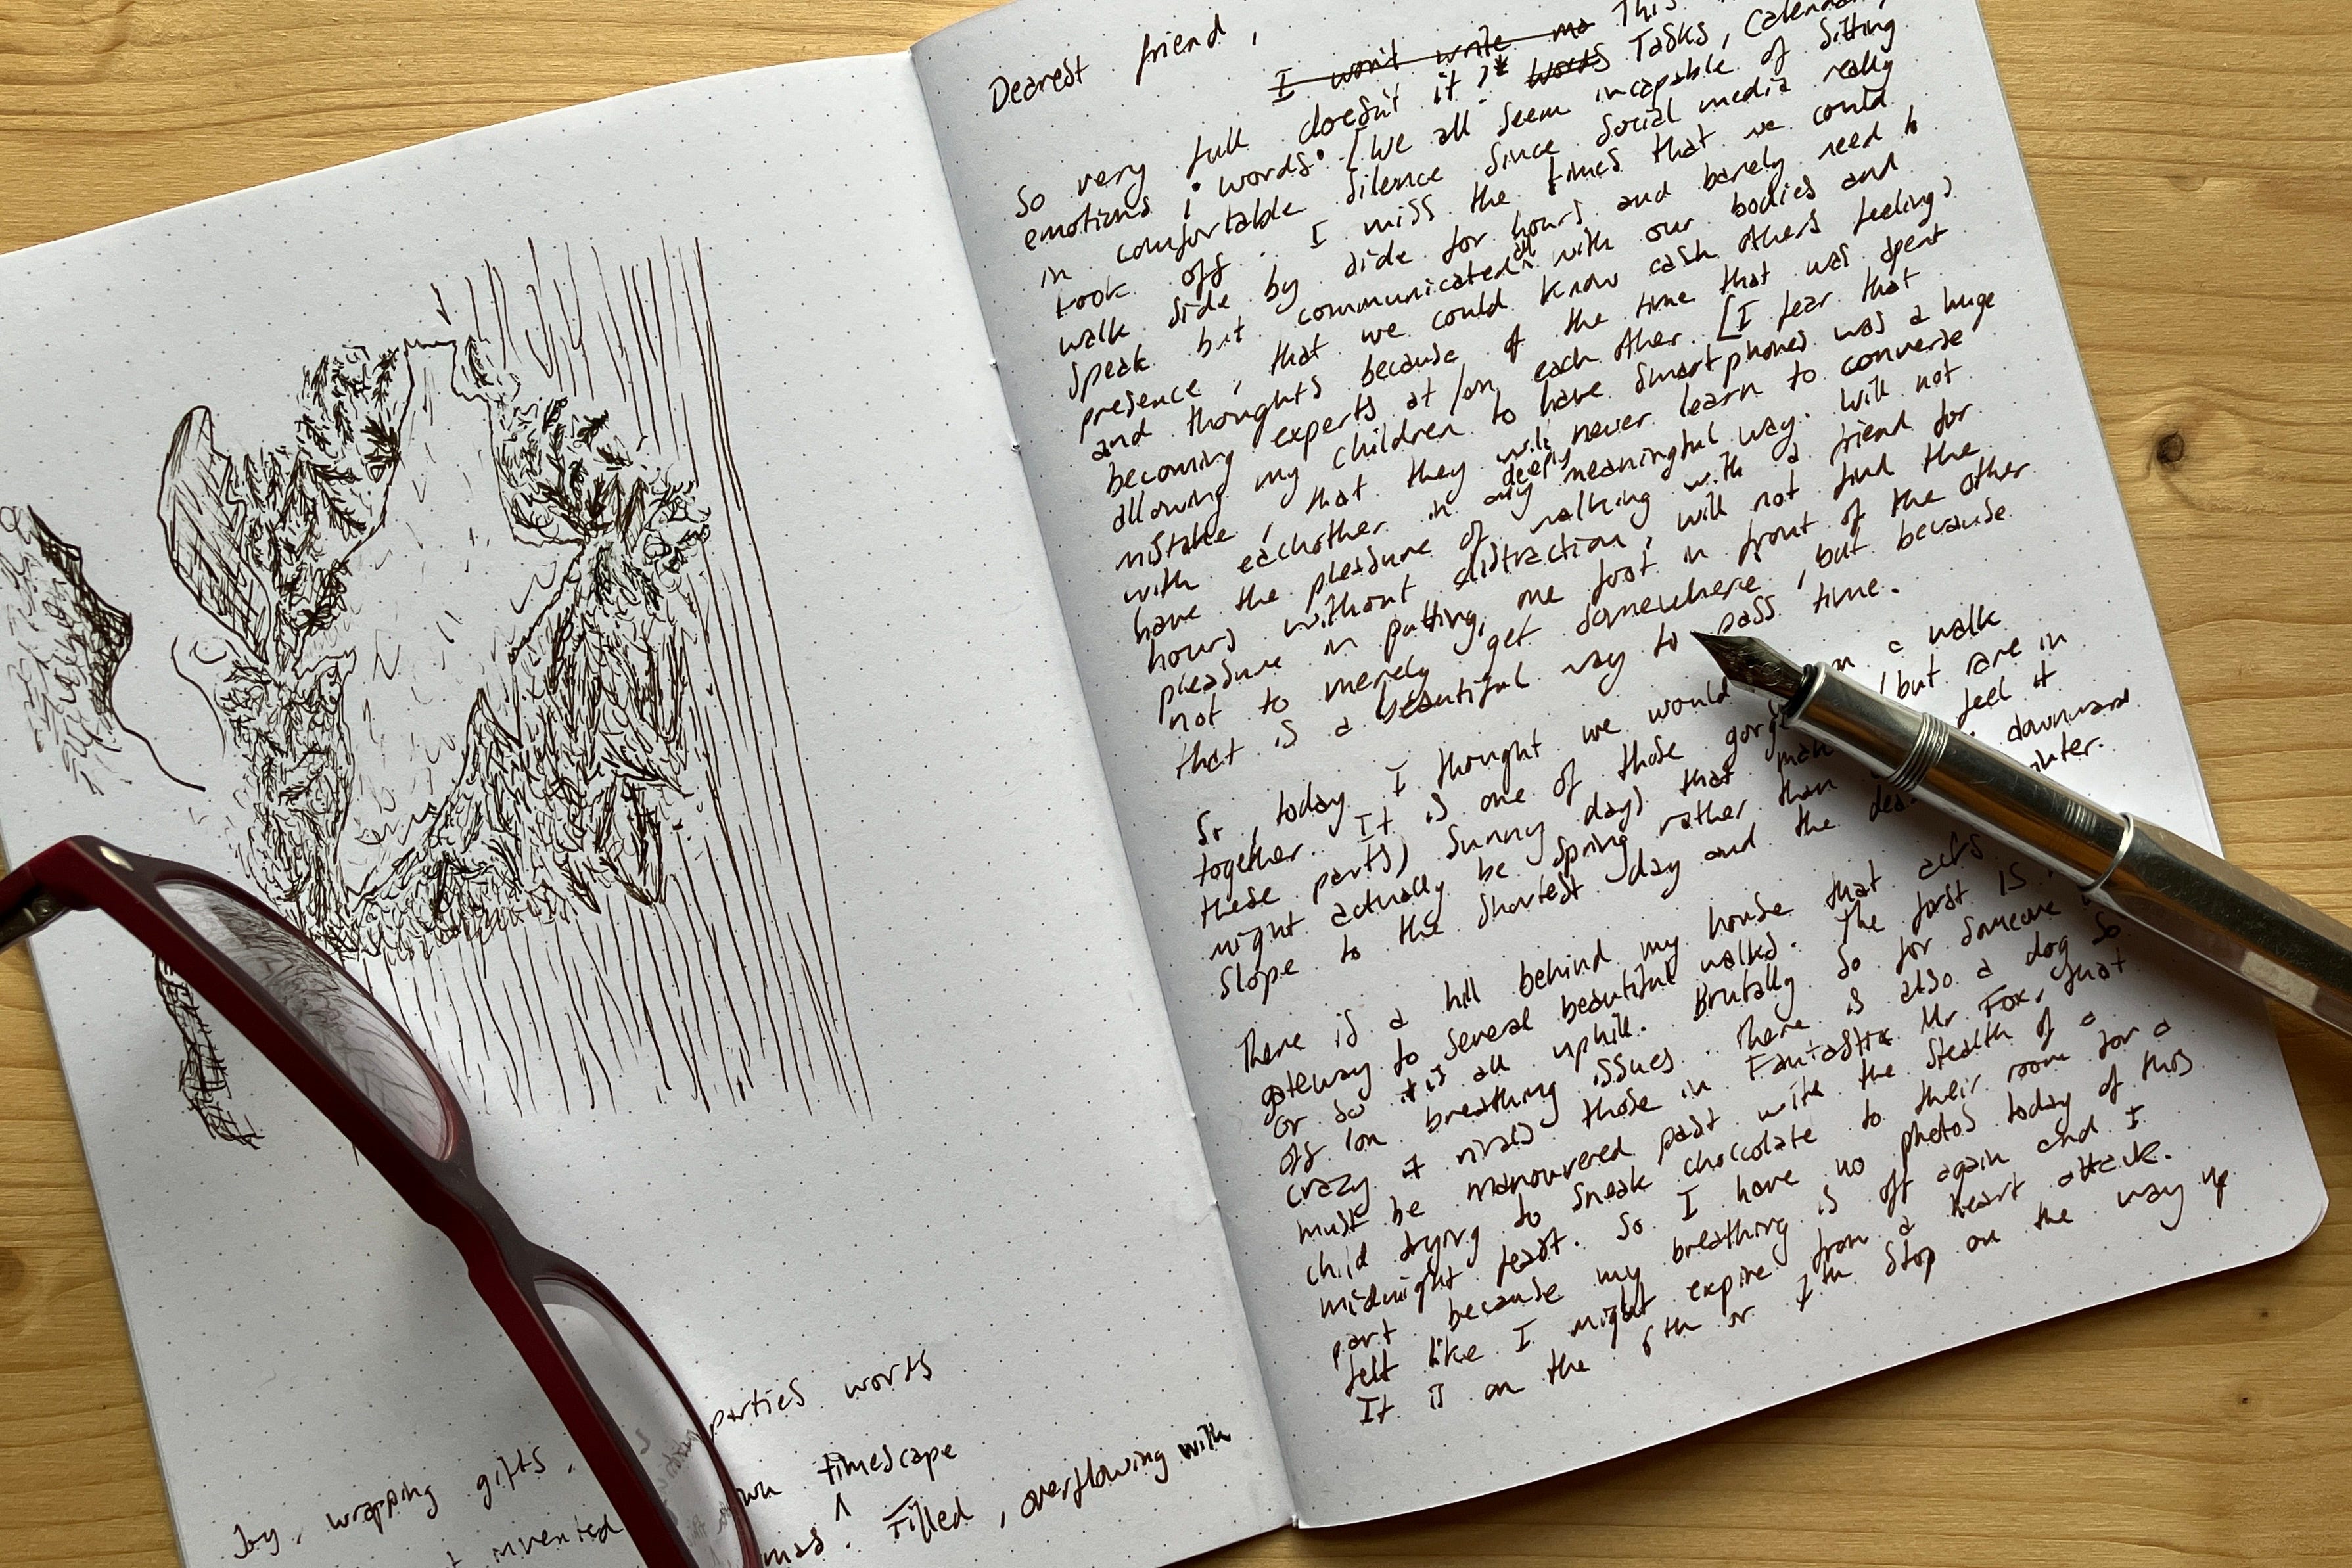 Joy, wrapping gifts, parties words
invented timescape
Filled, overflowing with
Dearest friend,
I won't write ma This
So very full doesn't it?* words Tasks, Calendar,
emotions, words. [We all seem incapable of sitting
in comfortable silence since social media really
took off. I miss the times that we could
walk side by side for hours and barely need to
speak but communicated with our bodies and
presence, that we could know each others feelings
and thoughts because of the time that was spent
becoming experts at/on each other. [I fear that
allowing my children to have smartphones was a huge
mistake, that they will never learn to converse
with eachother in any deeply meaningful way. Will not
have the pleasure of walking with a friend for
hours without distraction, will not find the
pleasure in putting one foot in front of the other
not to merely get somewhere, but because
that is a beautiful way to pass time.
So, today I thought we would a walk
together. It is one of those (but rare in
these parts) sunny days that feel it
might actually be spring rather than downward
slope to the shortest day and the
There is a hill behind my house that acts
gateway to several beautiful walks. The first
or so it is all uphill. Brutally so for someone
off/on breathing issues. There is also a dog so
crazy it rivals those in Fantastic Mr Fox, that
must be manouvered past with the stealth of a
child trying to sneak choccolate to their room for a
midnight feast. So I have no photos today of this
part because my breathing is off again and I
felt like I might expire from a heart attack.
It is on the 6th or 7th stop on the way up